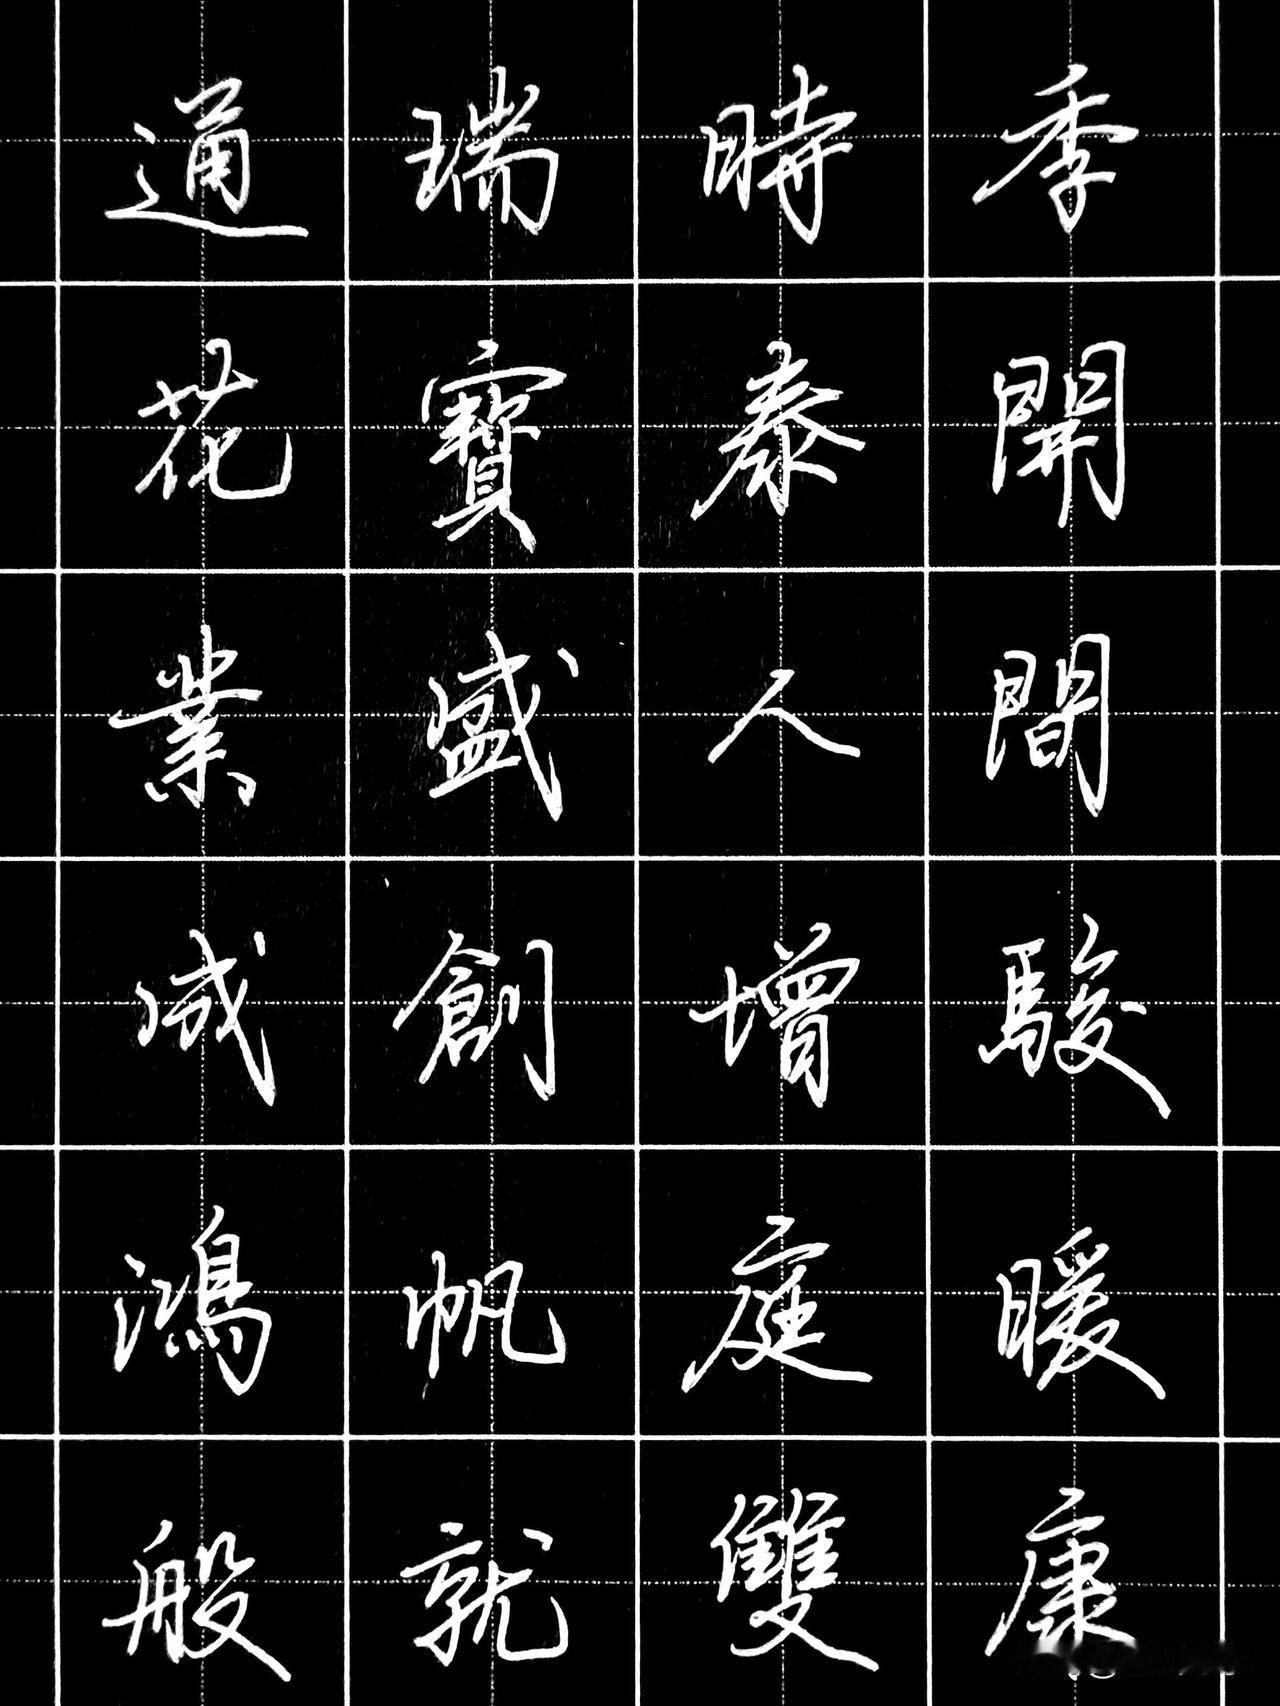 季開間駿暖康
時泰人增庭雙
瑞寶盛創帆就
通花業成鴻般